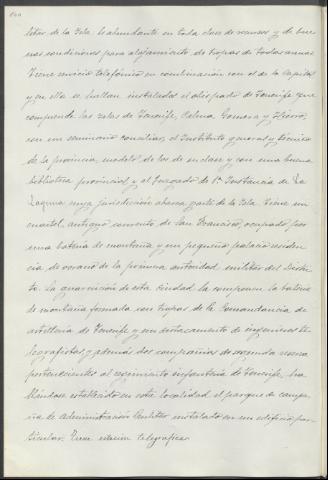 litar de la Isla. Es abundante en toda clase de recursos y de bue-
nas condiciones para alojamiento de tropas de todas armas
Tiene servicio telefónico en combinación con el de la Capital
y en ella se hallan instalados el obispado de Tenerife que
comprende las islas de Tenerife, Palma, Gomera y Hierro,
con un seminario conciliar, el Instituto general y técnico
de la provincia, modelo de los de su clase y con una buena
biblioteca provincial y el Juzgado de 1ª Instancia de La
Laguna cuya jurisdicción abarca parte de la Isla. Tiene un
cuartel, antiguo convento de San Francisco, ocupado por
una batería de montaña y un pequeño palacio residen-
cia de verano de la primera autoridad militar del Distri-
to. La guarnición de esta ciudad la componen la batería
de montaña formada con tropas de la Comandancia de
artillería de Tenerife y un destacamento de ingenieros te-
legrafistas, y además dos compañías de segunda
pertenecientes al regimiento infantería de Tenerife, ha-
biéndose establecido en esta localidad el parque de campa-
ña de Administración Militar instalado en un edificio par-
ticular. Tiene estación telegráfica